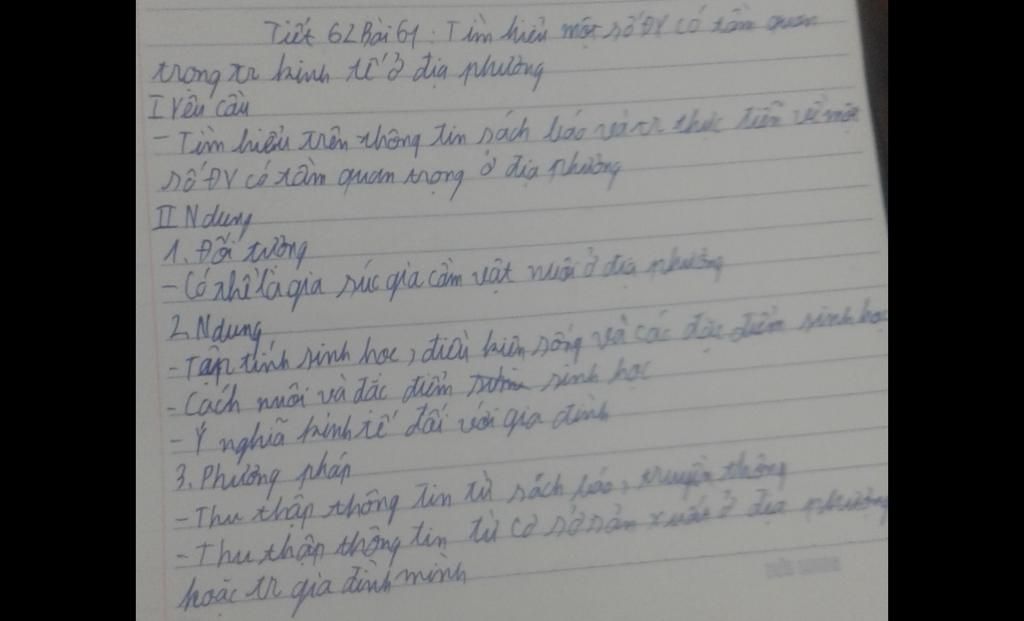 Tiết 62 Bài 61: Tìm hiểu một số ĐV có tầm quan
trọng tr kinh tế ở địa phương
I Yêu cầu
- Tìm hiểu trên thông tin sách báo và tr thực tiễn về một
số ĐV có tầm quan trọng ở địa phương
II N dung
1. Đối tượng
- Có thể là gia súc gia cầm vật nuôi ở địa phương
2. N dung
- Tập tính sinh học, điều kiện sống và các đặc điểm sinh học
- Cách nuôi và đặc điểm sinh học
- Ý nghĩa kinh tế đối với gia đình
3. Phương pháp
- Thu thập thông tin từ sách báo, truyền thông
- Thu thập thông tin từ cơ sở sản xuất ở địa phương
hoặc tr gia đình mình